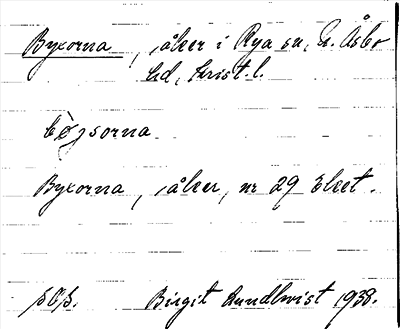 Byxorna, åker i Rya sn, N. Åsbo
hd, Krist. l.
bøjsorna
Byxorna, åker, nr 29 Ekeet.
Birgit Lundkvist 1938.